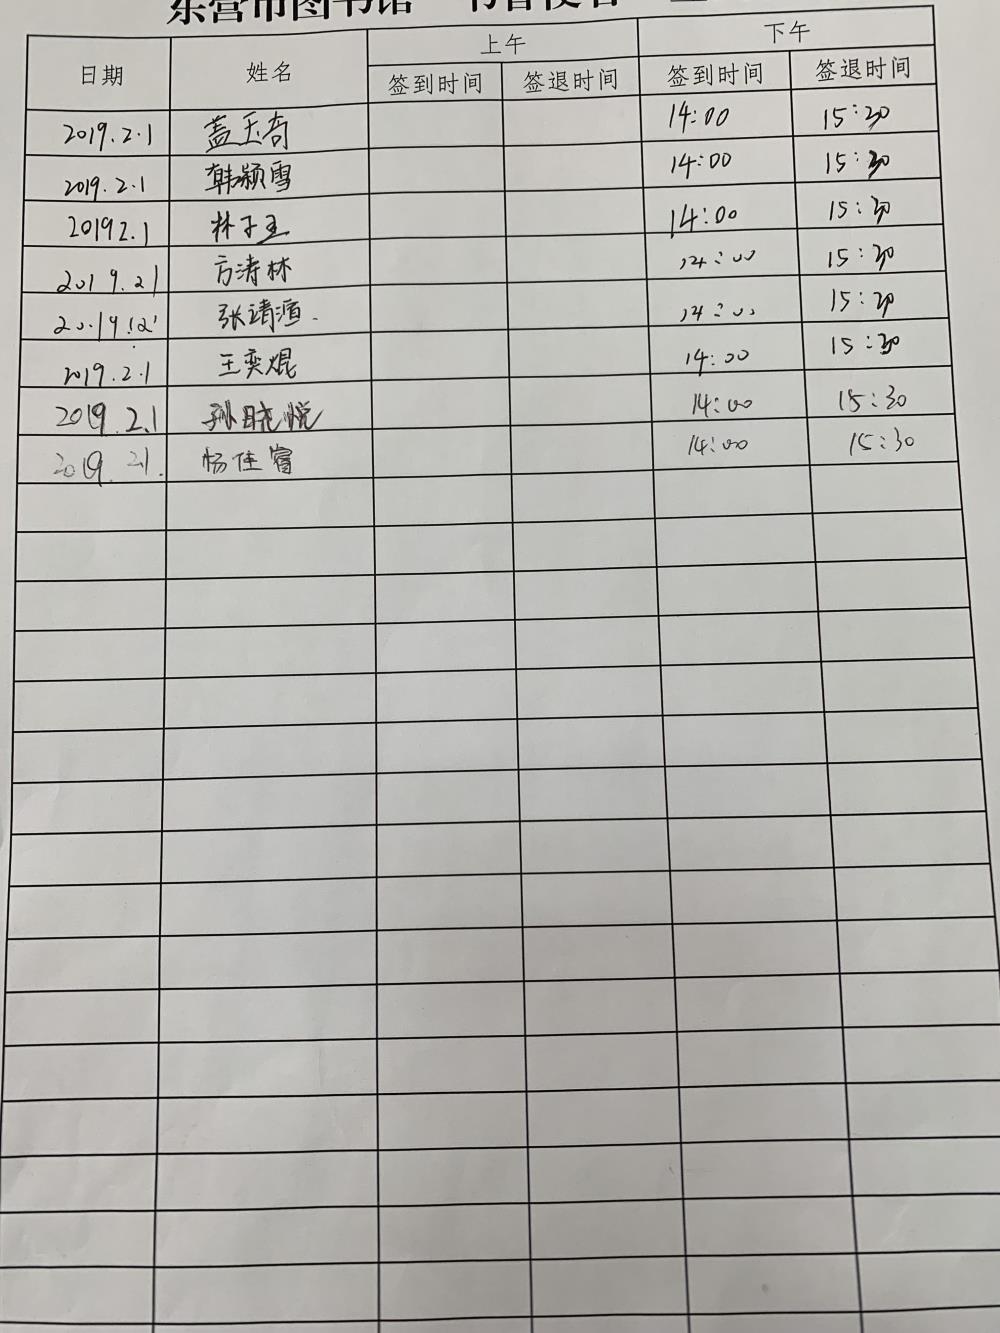 东营市图书馆
上午 下午
日期 姓名 签到时间 签退时间 签到时间 签退时间
2019.2.1 盖玉奇 14:00 15:30
2019.2.1 韩颖雪 14:00 15:30
20192.1 林子玉 14:00 15:30
2019.21 方涛林 14:00 15:30
张靖 14:00 15:30
2019.2.1 王奕焜 14:00 15:30
2019.2.1 孙晓悦 14:00 15:30
2019.21. 杨佳睿 14:00 15:30